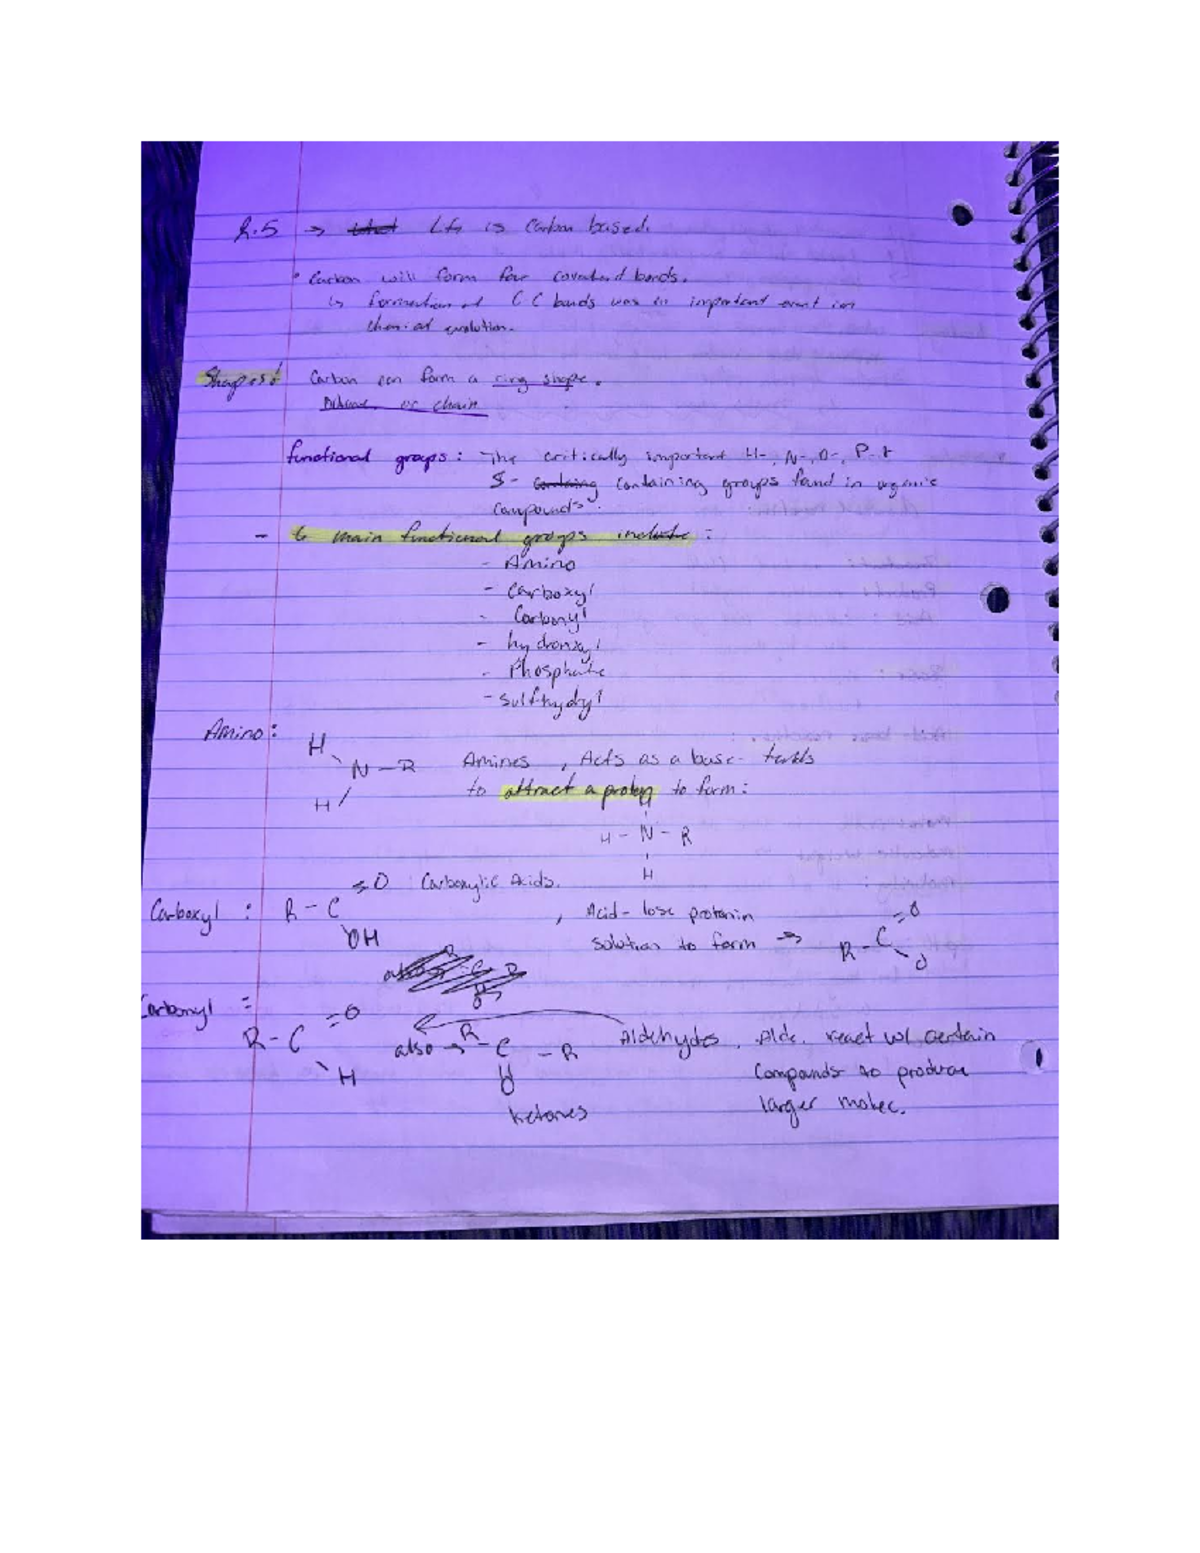 2.5 → Life is Carbon based.
• Carbon will form four covalent bonds.
↳ formation of C C bonds was an important event in
chemical evolution.
Shapes! Carbon can form a ring shape.
or chain
functional groups: The critically important H-, N-, O-, P- +
S- containing groups found in organic
compounds.
- 6 main functional groups include:
- Amino
- Carboxyl
- Carbonyl
- hydroxyl
- Phosphate
- sulfhydryl
Amino:
H
N-R
H
Amines, Acts as a base- tends
to attract a proton to form:
H
H-N-R
H
Carboxyl: R-C
=O
OH
Carboxylic Acids.
, Acid- lose proton in
solution to form →
R-C
=O
O
Carbonyl =
R-C
=O
H
also → R-C-R
O
ketones
Aldehydes, Alde. react w/ certain
compounds to produce
larger molec.